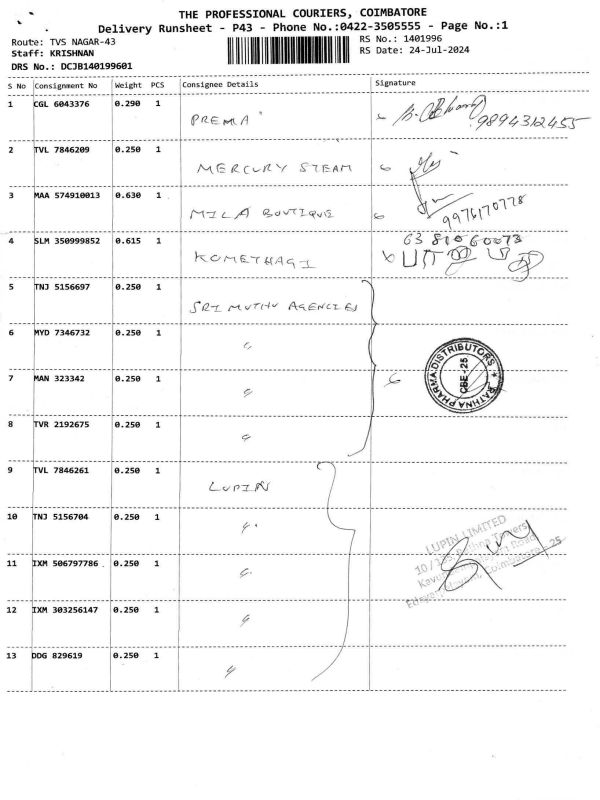 THE PROFESSIONAL COURIERS, COIMBATORE
Delivery Runsheet - P43 - Phone No.:0422-3505555 - Page No.:1
Route: TVS NAGAR-43
RS No.: 1401996
Staff: KRISHNAN
RS Date: 24-Jul-2024
DRS No.: DCJB140199601
S No Consignment No Weight PCS Consignee Details Signature
1 CGL 6043376 0.290 1 PREMLA 9894312455
2 TVL 7846209 0.250 1 MERCURY STEAM
3 MAA 574910013 0.630 1 MILA BOUTIQUE 9976170778
4 SLM 350999852 0.615 1 KOMETHAGI 63 81060073
5 TNJ 5156697 0.250 1 SRI MUTHU AGENCIES
6 MYD 7346732 0.250 1 "
7 MAN 323342 0.250 1 " RATHNA PHARMA DISTRIBUTORS * CBE-25
8 TVR 2192675 0.250 1 "
9 TVL 7846261 0.250 1 LUPIN
10 TNJ 5156704 0.250 1 "
LUPIN LIMITED
11 IXM 506797786 0.250 1 "
12 IXM 303256147 0.250 1 "
13 DDG 829619 0.250 1 "